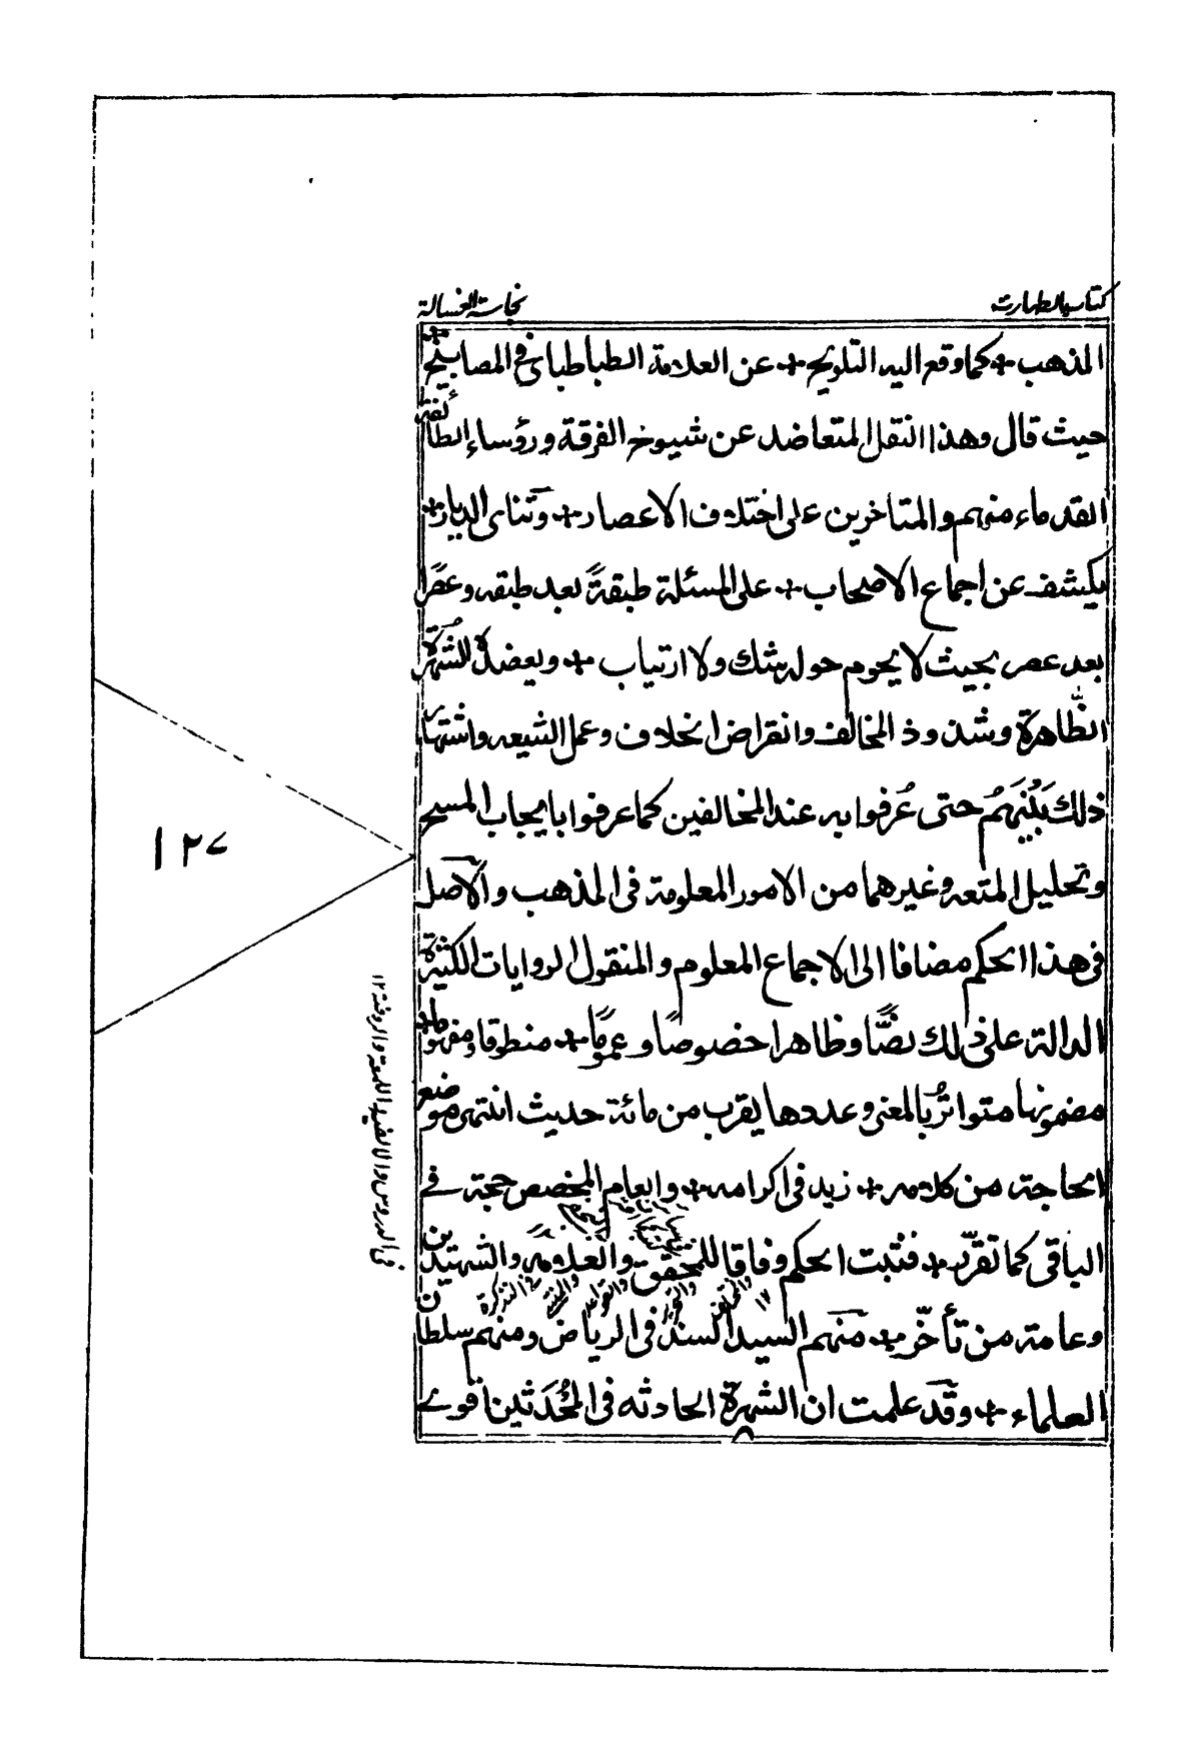 كتاب الطهارت
نجاسة الغسالة
المذهب + كما وقع اليه التلويح + عن العلامة الطباطبائى فى المصابيح +
حيث قال وهذا النقل المتعاضد عن شيوخ الفرقة ورؤساء الطائفة
القدماء منهم والمتاخرين على اختلاف الاعصار + وتنائى الديار +
يكشف عن اجماع الاصحاب + على المسئلة طبقةً بعد طبقه وعصرًا
بعد عصر بحيث لا يحوم حوله شك ولا ارتياب + ويعضده الشُهرة
الظّاهرة وشذوذ المخالف وانقراض الخلاف وعمل الشيعه واشتهار
ذلك بَيْنَهُمُ حتى عُرفوا به عند المخالفين كما عرفوا بايجاب المسح
وتحليل المتعه وغيرهما من الامور المعلومة فى المذهب والاصل
فى هذا الحكم مضافا الى الاجماع المعلوم والمنقول الروايات الكثيرة
الدالة على ذلك نصًّا وظاهرا خصوصًا وعمومًا + منطوقا ومفهوما +
مضمونها متواترُ بالمعنى وعددها يقرب من مائة حديث انتهى موضع
الحاجة من كلامه + زيد فى اكرامه + والعام المخصص حجة فے
الباقى كما تقرّر + فثبت الحكم وفاقا للمحقق والعلامة والشهيدين
والمختلف ١٢
والتحرير
والقواعد
والتذكرة
وعامة من تأخّر + منهم السيد السند فى الرياض ومنهم سلطان
العلماء + وقد علمت ان الشهرة الحادثه فى المُحَدثين اقوے
فى الدروس والالفيه واللمعة والروضة ١٢
١٢٧